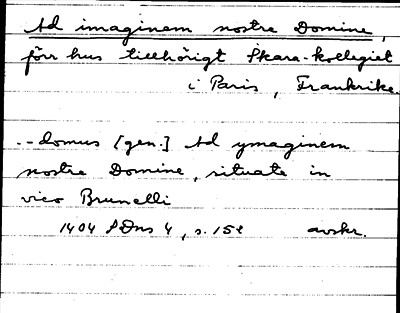 Ad imaginem nostre Domine,
förr hus tillhörigt Skara-kollegiet
i Paris, Frankrike
.. domus [gen.] Ad ymaginem
nostre Domine, situate in
vico Brunelli
1404 SDns 4, s. 152 avskr.